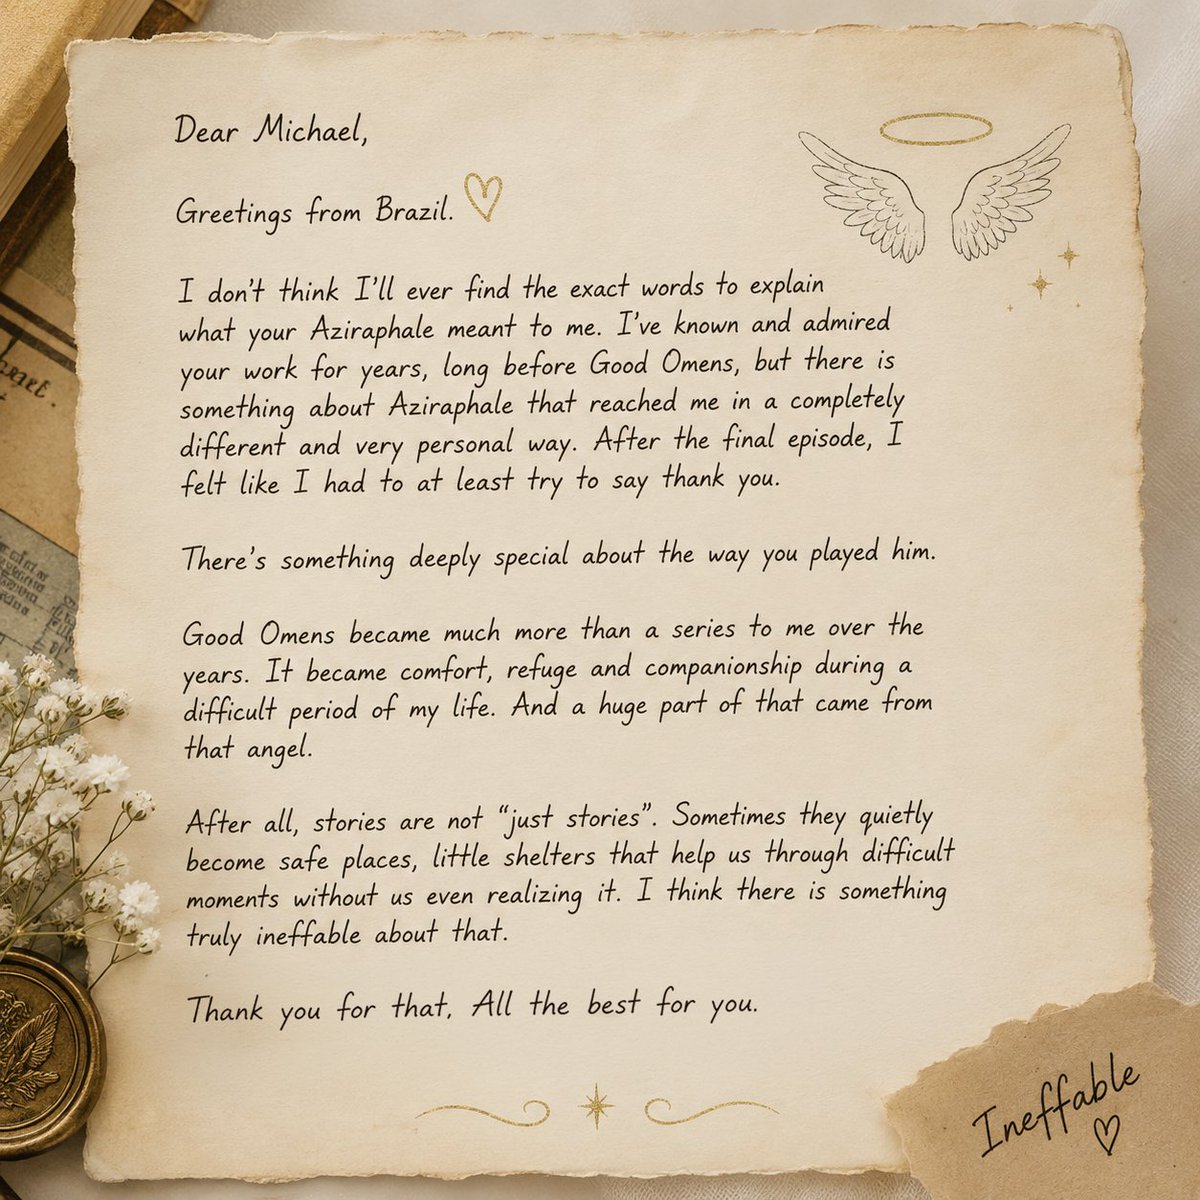 Dear Michael,
Greetings from Brazil.
I don't think I'll ever find the exact words to explain
what your Aziraphale meant to me. I've known and admired
your work for years, long before Good Omens, but there is
something about Aziraphale that reached me in a completely
different and very personal way. After the final episode, I
felt like I had to at least try to say thank you.
There's something deeply special about the way you played him.
Good Omens became much more than a series to me over the
years. It became comfort, refuge and companionship during a
difficult period of my life. And a huge part of that came from
that angel.
After all, stories are not “just stories”. Sometimes they quietly
become safe places, little shelters that help us through difficult
moments without us even realizing it. I think there is something
truly ineffable about that.
Thank you for that. All the best for you.
Ineffable